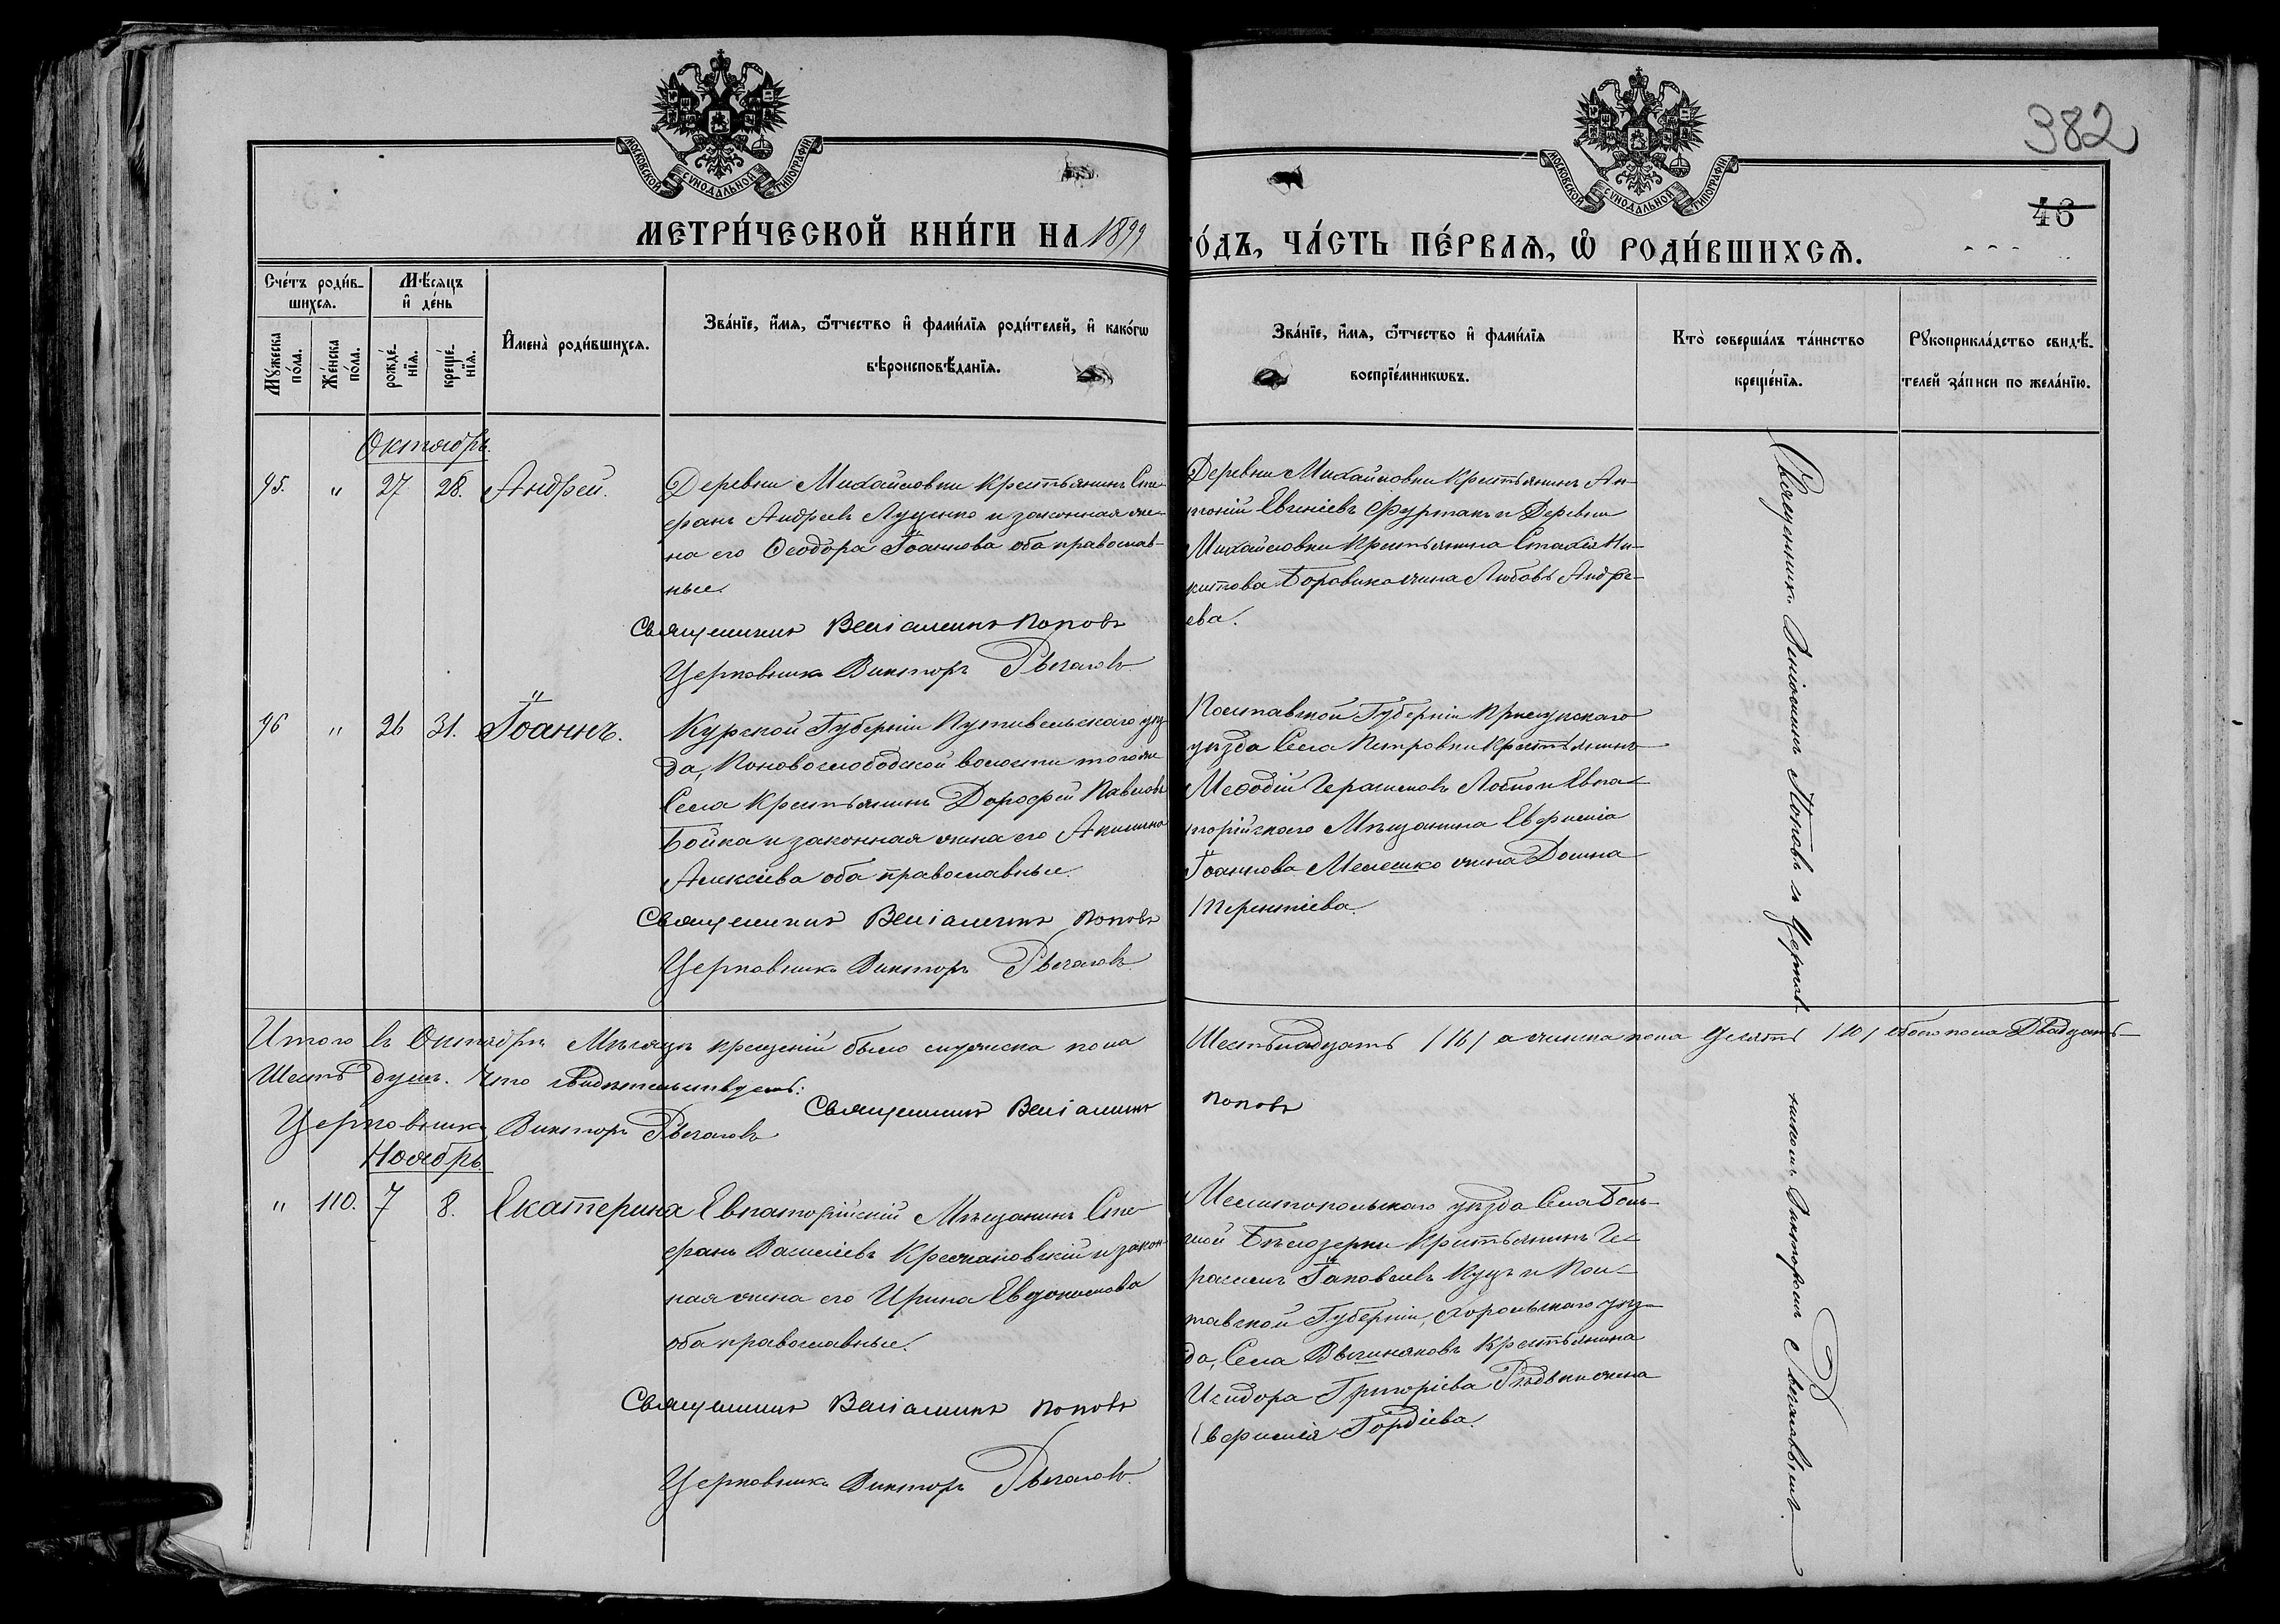 382
46
МОСКОВСКОЙ СУНОДАЛЬНОЙ ТИПОГРАФІИ
МОСКОВСКОЙ СУНОДАЛЬНОЙ ТИПОГРАФІИ
МЕТРИ́ЧЕСКОЙ КНИ́ГИ НА 1899 ГО́ДЪ, ЧА́СТЬ ПЕ́РВАЯ, Ѡ҆ РОДИ́ВШИХСѦ.
Сче́тъ роди́в-
шихсѧ.
Мꙋ́жеска по́ла.
Же́нска по́ла.
Мѣ́сяцъ
и҆ де́нь
рожде́-
нїѧ.
креще́-
нїѧ.
И҆мена̀ роди́вшихсѧ.
Зва́нїе, и҆́мѧ, ѻ҆́тчество и҆ фами́лїѧ роди́телей, и҆ како́гѡ
вѣроисповѣ́данїѧ.
Зва́нїе, и҆́мѧ, ѻ҆́тчество и҆ фами́лїѧ
воспрїе́мникѡвъ.
Кто̀ соверша́лъ та́инство
креще́нїѧ.
Рꙋкоприкла́дство свидѣ́-
телей за́писи по жела́нїю.
Октябрь.
95. " 27 28. Андрей.
Деревни Михайловки крестьянинъ Сте-
фанъ Андреевъ Луценко и законная же-
на его Ѳеодора Іоаннова оба православ-
ные.
Священникъ Веніаминъ Поповъ
Церковникъ Викторъ
Деревни Михайловки крестьянинъ Ан-
тоній Евгеніевъ Фурманъ и Деревни
Михайловки крестьянина Стахія Ни-
китова Боровика жена Любовь Андре-
ева.
96 " 26 31. Іоаннъ.
Курской Губерніи Путивльскаго уѣз-
да, Поновослободской волости того же
Села крестьянинъ Дорофей Павловъ
Бойка и законная жена его Акилина
Алексіева оба православные.
Священникъ Веніаминъ Поповъ
Церковникъ Викторъ
Полтавской Губерніи Прилукскаго
уѣзда Села Петровки крестьянинъ
Меѳодій Герасимовъ и Евпа-
торійскаго Мѣщанина Евфимія
Іоаннова Мелешко жена Домна
Терентіева.
Священникъ Веніаминъ Поповъ и Церков-
никомъ Викторомъ
Итого въ Октябрѣ Мѣсяцѣ крещеній было мужеска пола Шестьнадцать /16/ а женска пола десять /10/ обоего пола Двадцать
Шесть душъ. Что свидѣтельствуемъ:
Священникъ Веніаминъ Поповъ
Церковникъ Викторъ
Ноябрь.
" 110. 7 8. Екатерина
Евпаторійскій Мѣщанинъ Сте-
фанъ Василіевъ Крежановскій и закон-
ная жена его Ирина Евдокимова
оба православные.
Священникъ Веніаминъ Поповъ
Церковникъ Викторъ
Мелитопольскаго уѣзда Села Боль-
шой Бѣлозерки крестьянинъ Ге-
расимъ Іаковлевъ Куцъ и Пол-
тавской Губерніи, Хорольскаго уѣз-
да, Села крестьянина
Исидора Григоріева жена
Евфимія Гордіева.